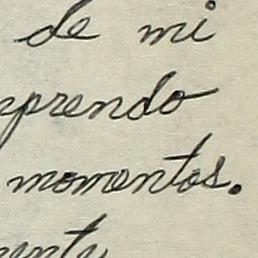 de mi
prendo
momentos.
mente